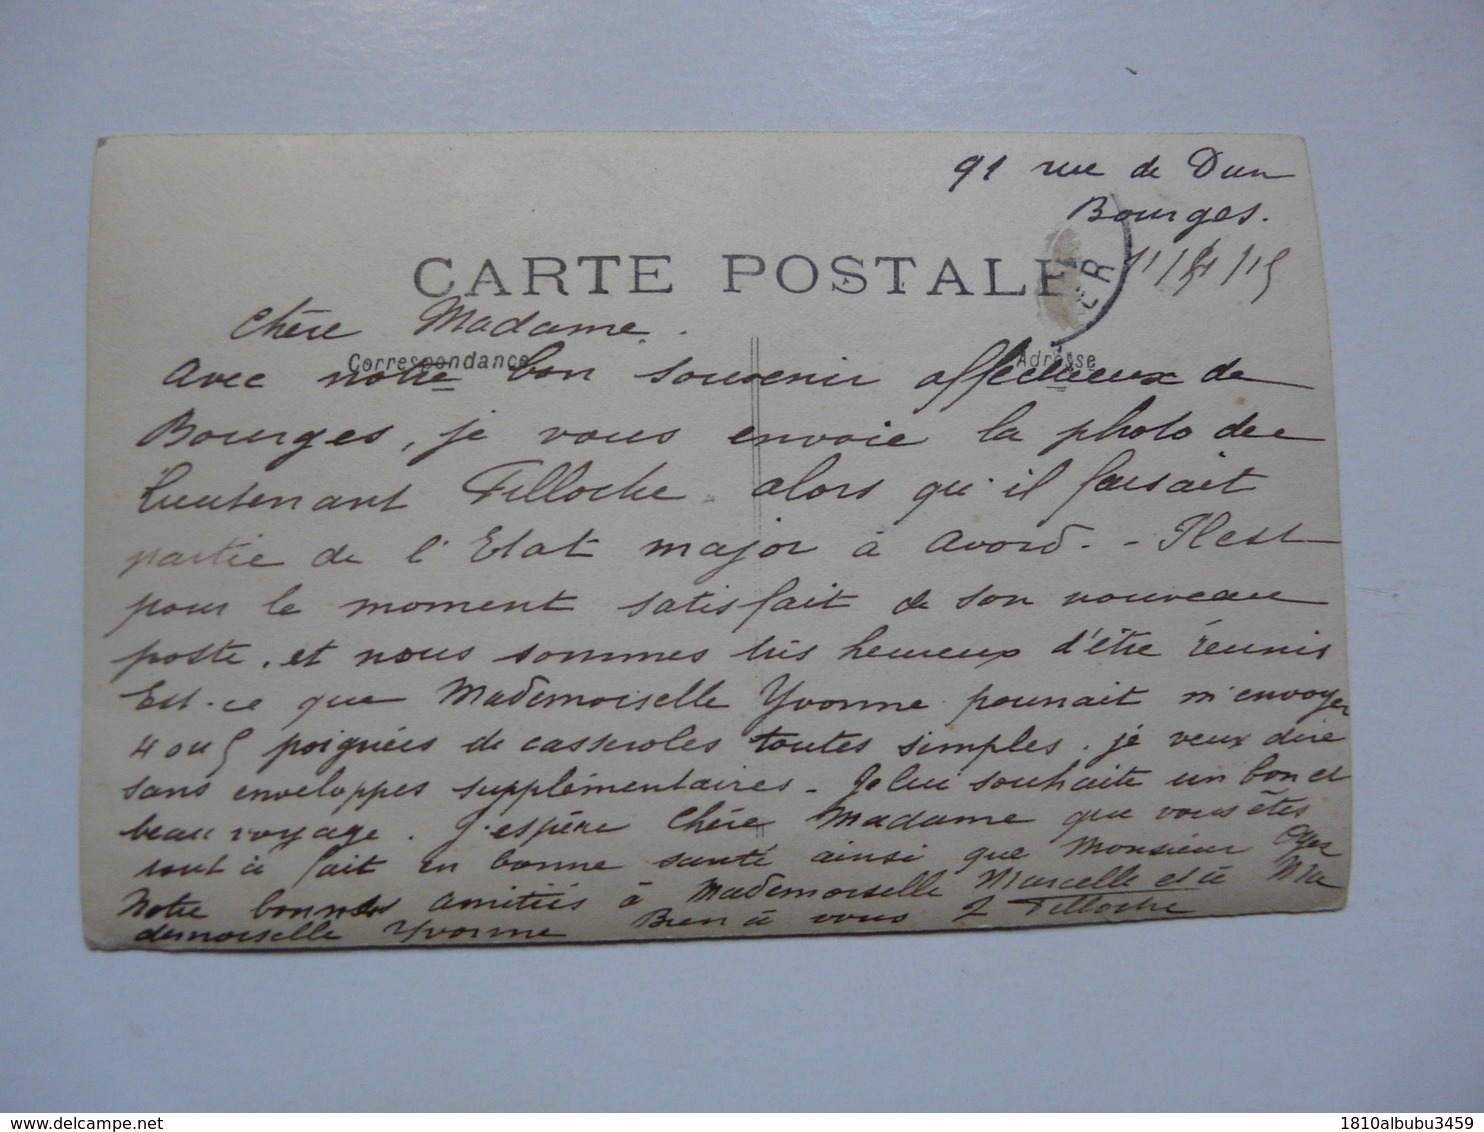 91 rue de Dun
Bourges.
CARTE POSTALE
ER
Chère Madame.
Correspondance
Adresse
Avec notre bon souvenir affectueux de
Bourges, je vous envoie la photo de
lieutenant Filloche alors qu'il faisait
partie de l'Etat major à Avord. - Il est
pour le moment satisfait de son nouveau
poste, et nous sommes très heureux d'être réunis
Est-ce que Mademoiselle Yvonne pourrait m'envoyer
4 ou 5 poignées de casseroles toutes simples. je veux dire
sans enveloppes supplémentaires - Je lui souhaite un bon et
beau voyage. J'espère Chère Madame que vous êtes
tout à fait en bonne santé ainsi que Monsieur Oger
Notre amitiés à Mademoiselle Marcelle et à Ma
demoiselle Yvonne Bien à vous Filloche
delcampe.net
1810albubu3459